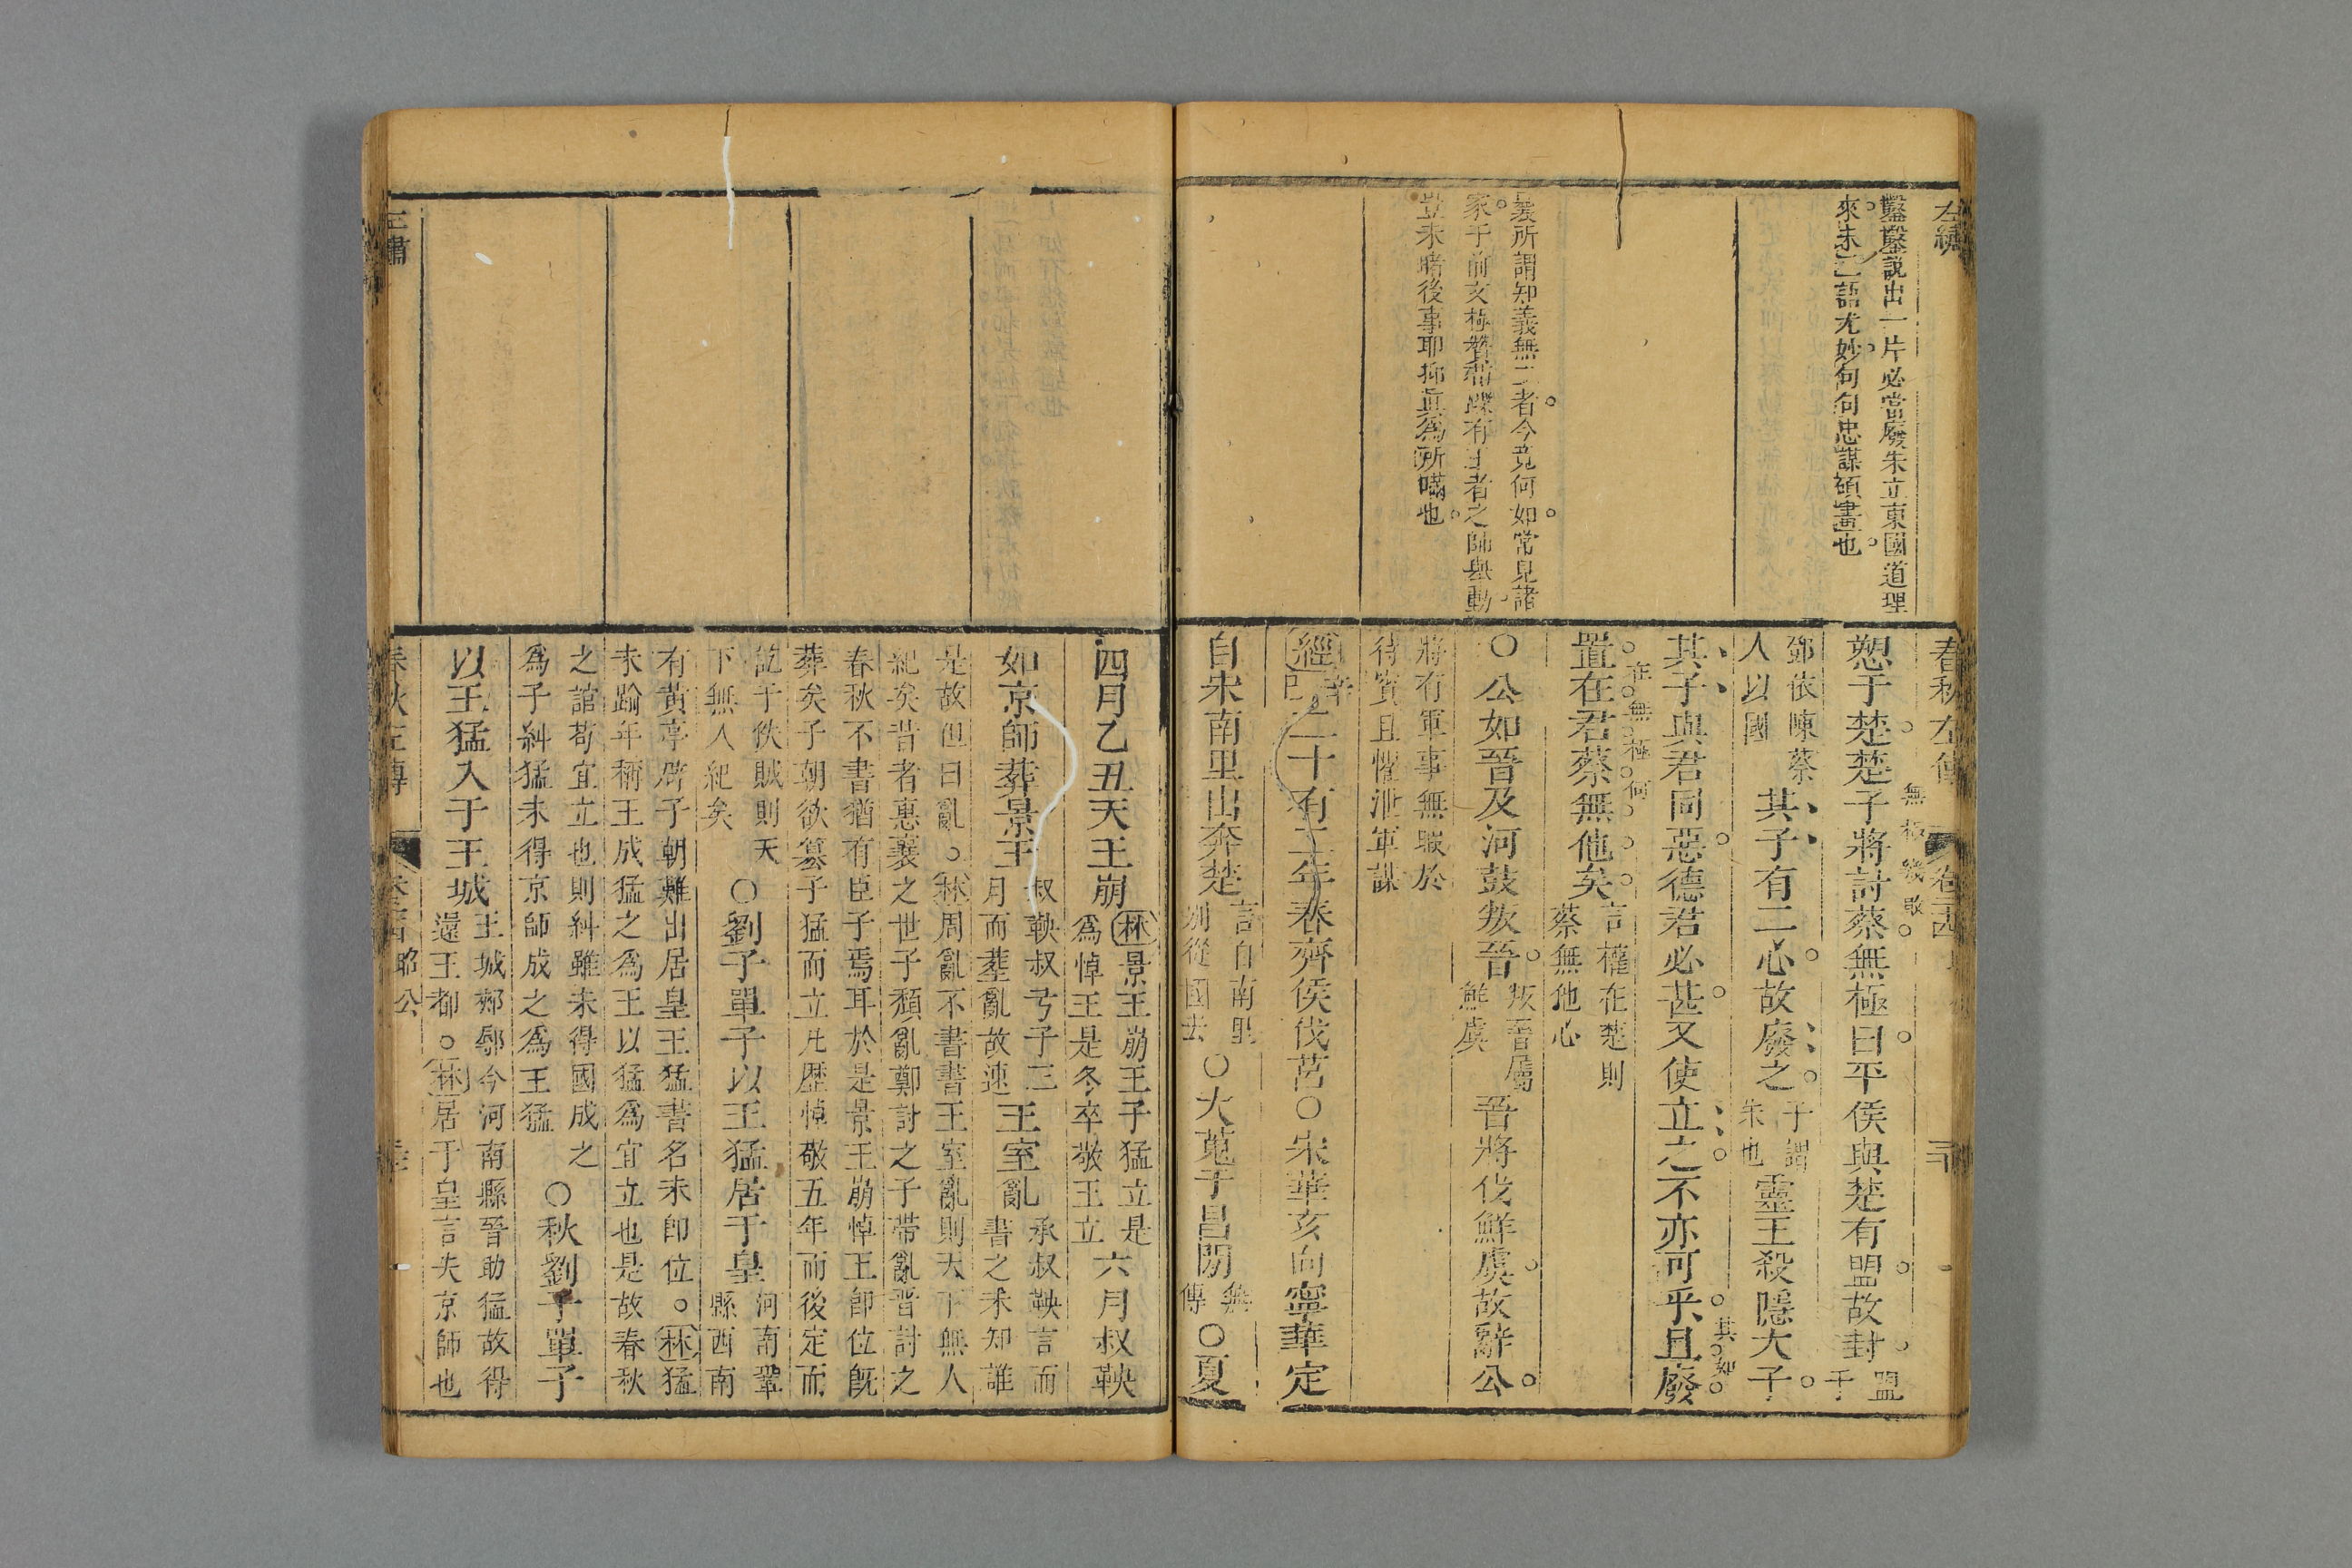 左繡
鑿鑿說出一片必當廢朱立東國道理
來朱二語尤妙句句忠謀碩畫也
襄所謂知義無二者今竟何如常見諸
家于前文極贊葢踩有王者之師舉動
豈未睹後事耶抑眞爲所瞞也
春秋左傳
愬于楚楚子將討蔡無極曰平侯與楚有盟故封
盟于
鄧依陳蔡
人以國
其子有二心故廢之
子謂
朱也
靈王殺隱大子
其子與君同惡德君必甚又使立之不亦可乎且廢
置在君蔡無他矣
言權在楚則
蔡無他心
○公如晉及河鼓叛晉
叛晉屬
鮮虞
晉將伐鮮虞故辭公
將有軍事無暇於
待賓且懼泄軍謀
經
二十有二年春齊侯伐莒○宋華亥向寧華定
自宋南里出奔楚
言自南里
別從國去
○大蒐于昌閒
無
傳
○夏
四月乙丑天王崩
林景王崩王子猛立是
爲悼王是冬卒敬王立
六月叔鞅
如京師葬景王
叔鞅叔弓子三
月而葬亂故速
王室亂
承叔鞅言而
書之未知誰
是故但曰亂○林周亂不書書王室亂則天下無人
紀矣昔者惠襄之世子頹亂鄭討之子帶亂晉討之
春秋不書猶有臣子焉耳於是景王崩悼王卽位旣
葬矣子朝欲篡子猛而立凡歷悼敬五年而後定而
訖于佚賊則天
下無人紀矣
○劉子單子以王猛居于皇
河南鞏
縣西南
有黃亭辟子朝難出居皇王猛書名未卽位○林猛
未踰年稱王成猛之爲王以猛爲宜立也是故春秋
之誼苟宜立也則糾雖未得國成之
爲子糾猛未得京師成之爲王猛
○秋劉子單子
以王猛入于王城
王城郟鄏今河南縣晉助猛故得
還王都○林居于皇言失京師也
春秋左傳
昭公